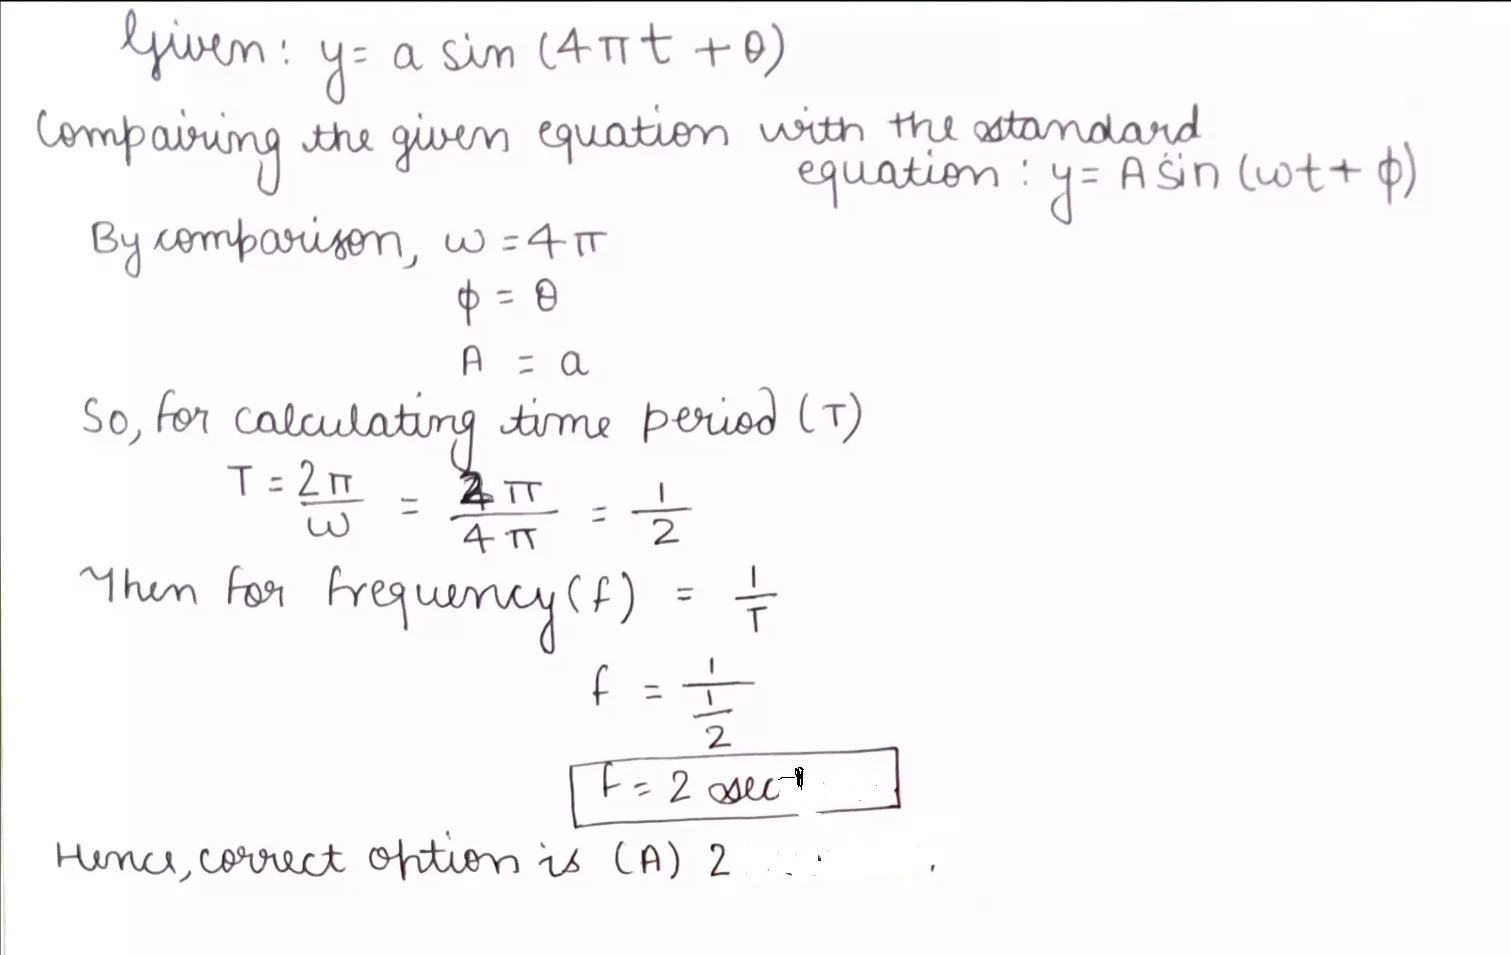 Given: y = a sin (4πt + θ)
Comparing the given equation with the standard
equation : y = A sin (ωt + φ)
By comparison, ω = 4π
φ = θ
A = a
So, for calculating time period (T)
T = 2π/ω = 2π/4π = 1/2
Then for frequency (f) = 1/T
f = 1/(1/2)
f = 2 sec⁻¹
Hence, correct option is (A) 2